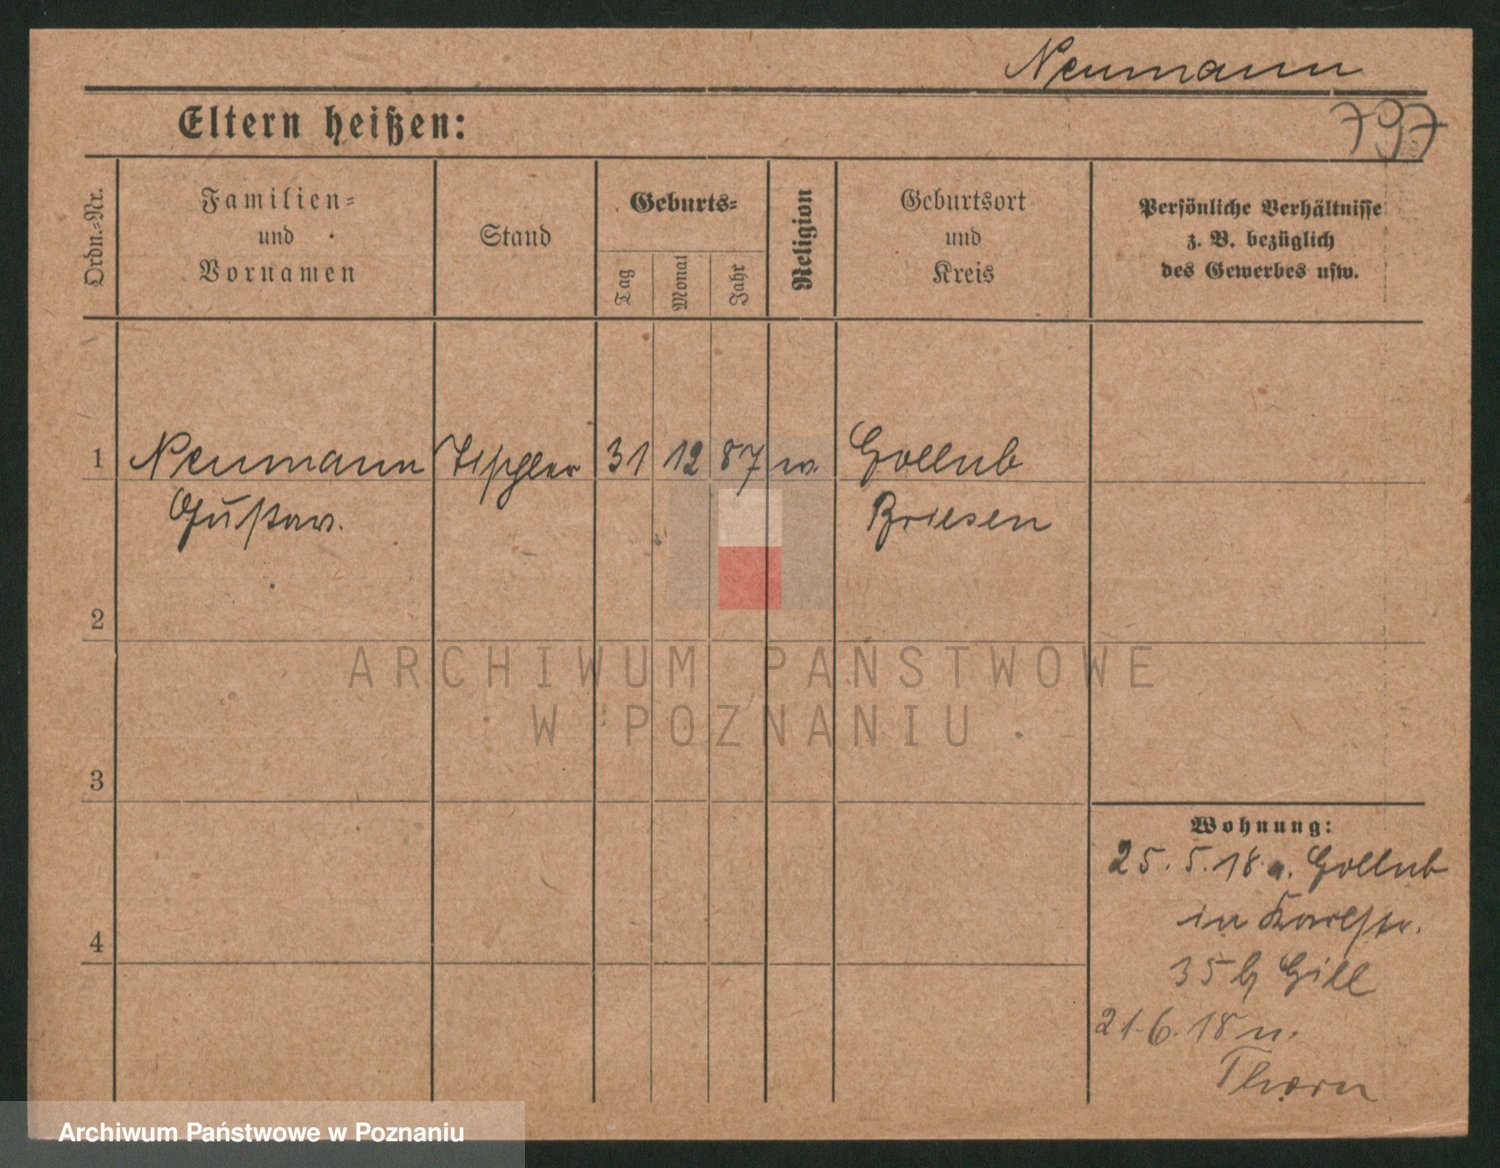 Neumann
797
Eltern heißen:
Ordn.-Nr.
Familien-
und
Vornamen
Stand
Geburts-
Tag
Monat
Jahr
Religion
Geburtsort
und
Kreis
Persönliche Verhältnisse
z. B. bezüglich
des Gewerbes usw.
1 Neumann Tischler 31 12 87 Gollub
Gustav. Briesen
2
ARCHIWUM PAŃSTWOWE
W POZNANIU
3
4
Wohnung:
25. 5. 18 Gollub
in Karlstr.
35 b Gill
21. 6. 18 n.
Thorn
Archiwum Państwowe w Poznaniu